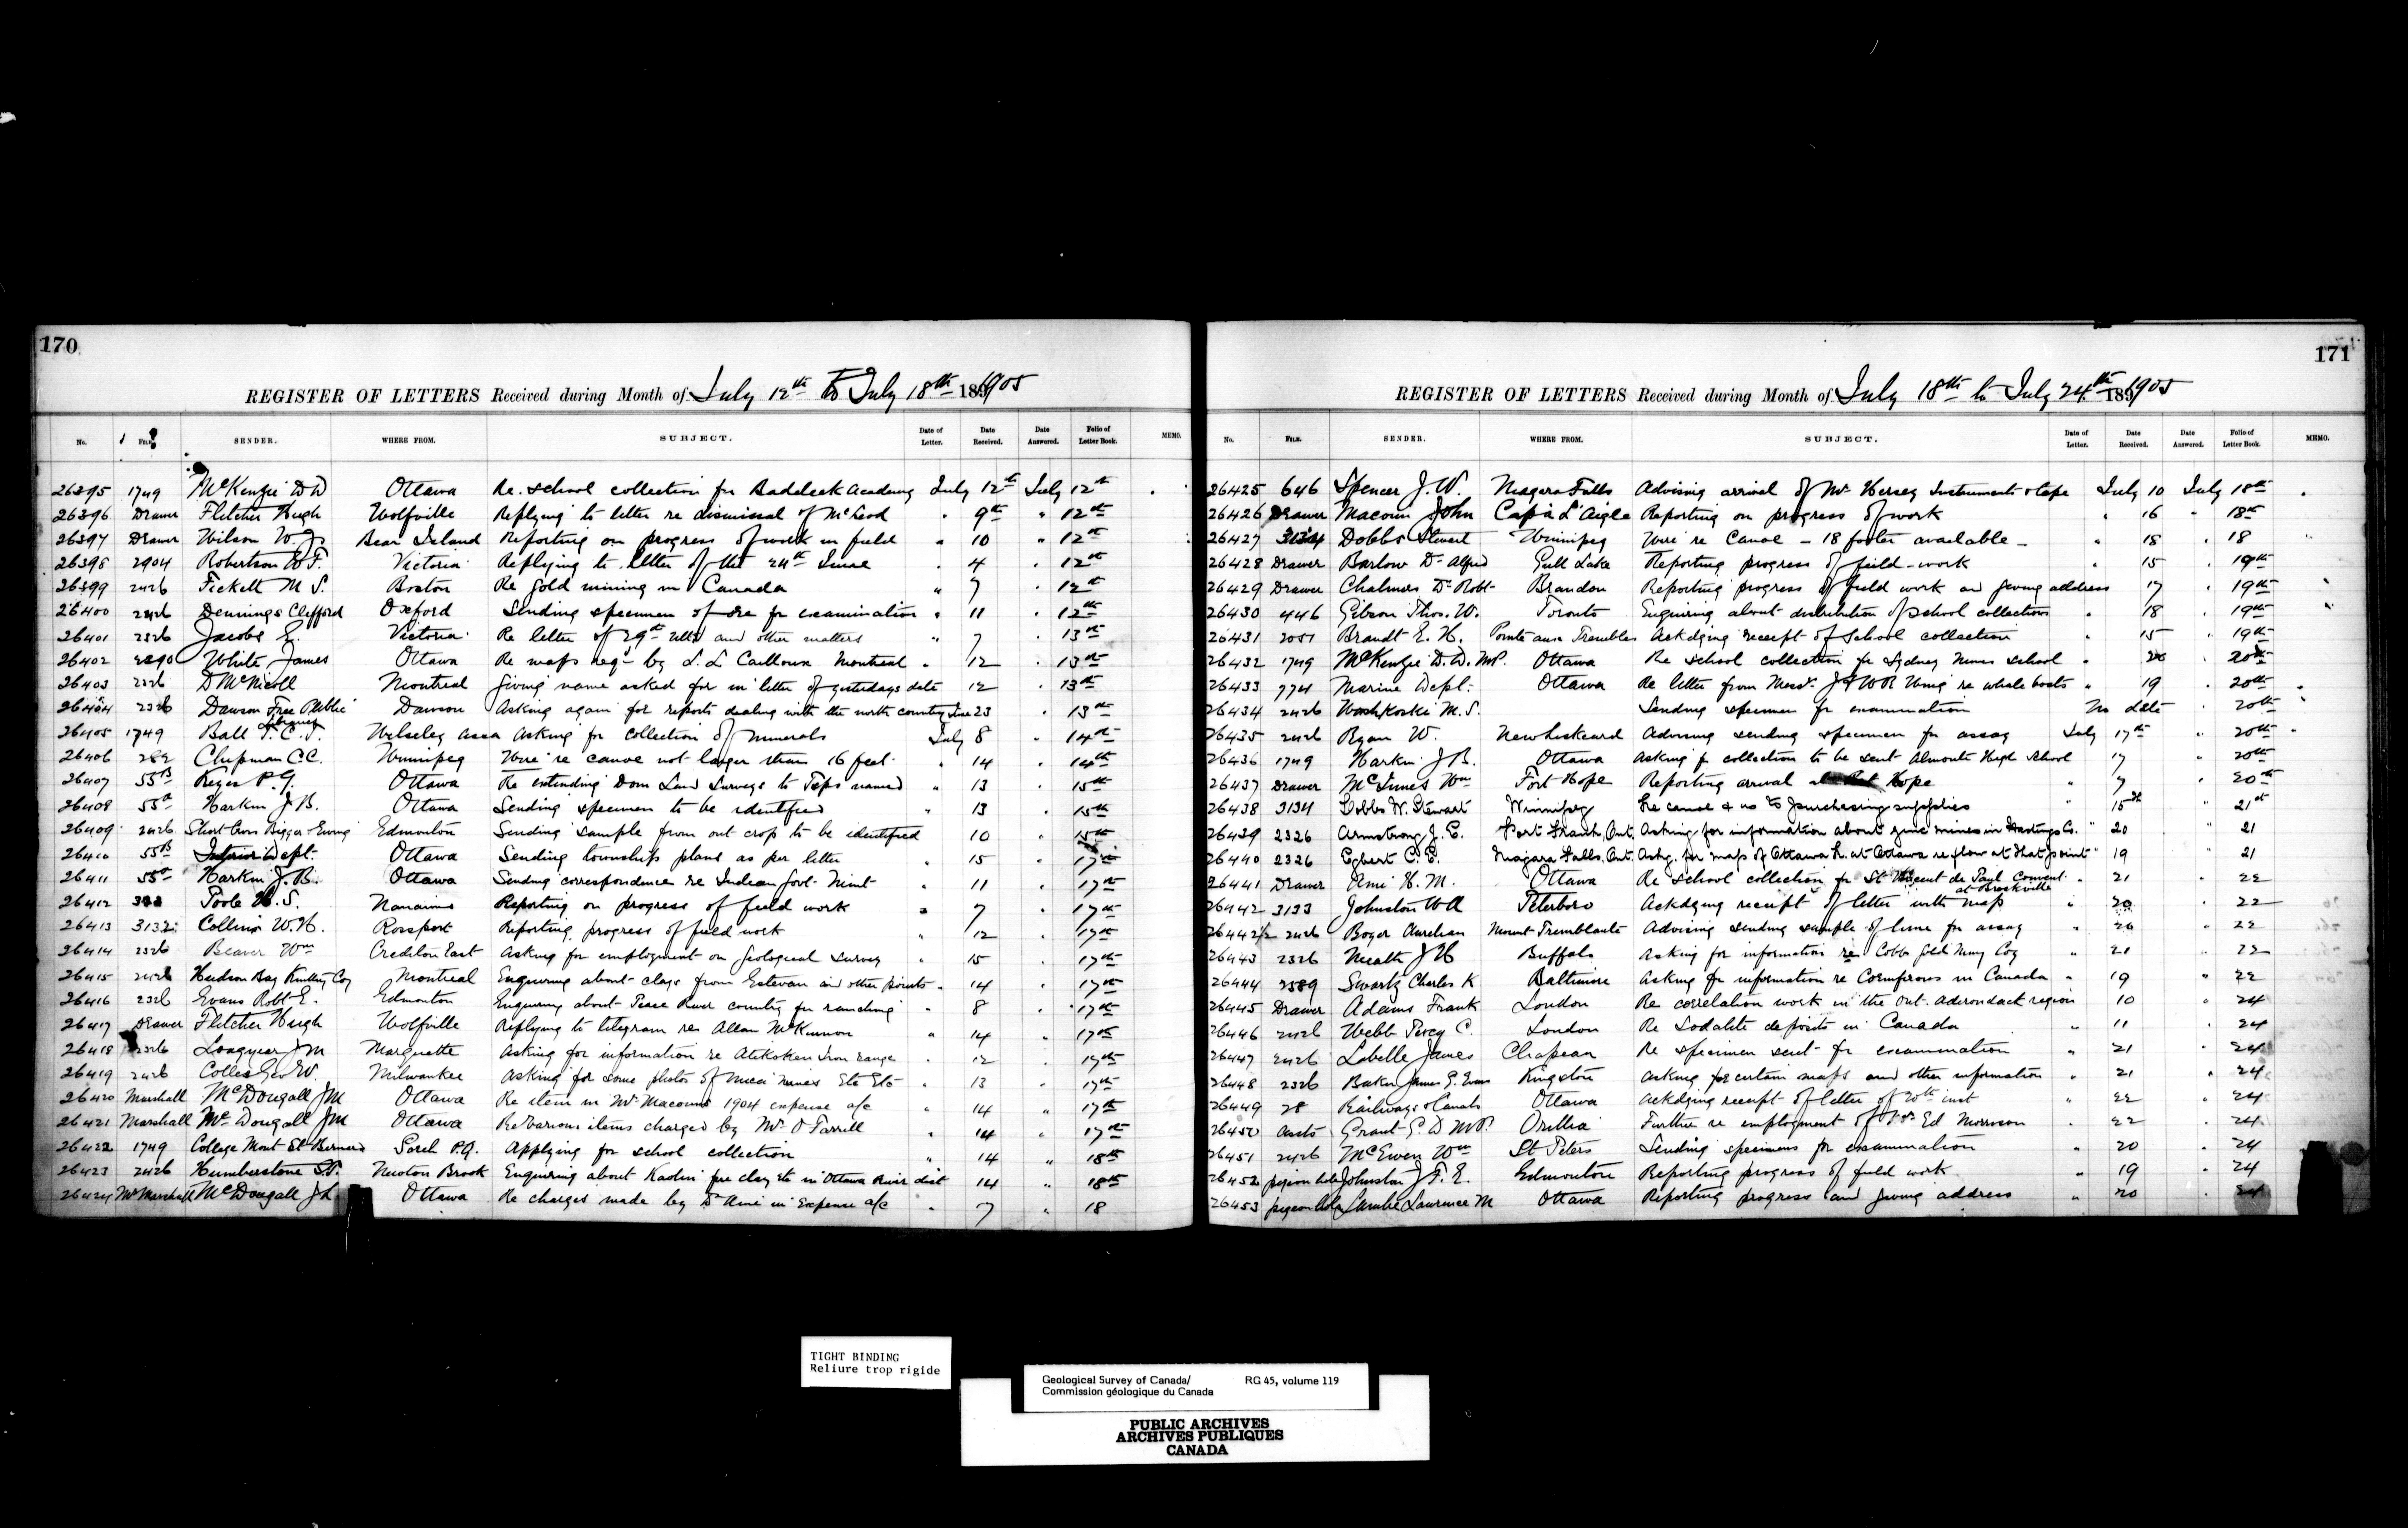 170
REGISTER OF LETTERS Received during Month of July 12th to July 18th 1905
No. FILE. SENDER. WHERE FROM. SUBJECT. Date of Letter. Date Received. Date Answered. Folio of Letter Book. MEMO.
26395 1749 McKenzie D D Ottawa Re. school collection for Baddeck Academy July 12th July 12th
26396 Drawer Fletcher Hugh Wolfville Replying to letter re dismissal of McLeod " 9th " 12th
26397 Drawer Wilson W. J. Bear Island Reporting on progress of work in field " 10 " 12th
26398 2904 Robertson W F. Victoria Replying to letter of the 24th June " 4 " 12th
26399 2426 Fickett M S. Boston Re gold mining in Canada " 7 " 12th
26400 2426 Dennings Clifford Oxford Sending specimen of ore for examination " 11 " 12th
26401 2326 Jacobs E. Victoria Re letter of 29th ulto and other matters " 7 " 13th
26402 2290 White James Ottawa Re maps reqd by S. L Calhoun Montreal " 12 " 13th
26403 2326 D McNicoll Montreal Giving name asked for in letter of yesterdays date 12 " 13th
26404 2326 Dawson Free Public Library Dawson Asking again for reports dealing with the north country June 23 " 13th
26405 1749 Ball T. C. J. Welseley Assa Asking for collection of minerals July 8 " 14th
26406 282 Chipman C.C. Winnipeg Wire re canoe not larger than 16 feet. " 14 " 14th
26407 55B Keyes P. G. Ottawa Re extending Dom Land Surveys to Tsps named " 13 " 15th
26408 55a Harkin J. B. Ottawa Sending specimen to be identified " 13 " 15th
26409 2426 Short Cross Biggar & Ewing Edmonton Sending sample from out crop to be identified 10 " 15th
26410 55B Interior Dept. Ottawa Sending township plans as per letter " 15 " 17th
26411 55a Harkin J. B. Ottawa Sending correspondence re Indian Govt. Mint " 11 " 17th
26412 Poole H. S. Nanaimo Reporting on progress of field work " 7 " 17th
26413 3132 Collins W. H. Rossport Reporting progress of field work " 12 " 17th
26414 2326 Beaver Wm Crediton East Asking for employment on Geological Survey " 15 " 17th
26415 2426 Hudson Bay Knitting Coy Montreal Enquiring about clays from Estevan and other points " 14 " 17th
26416 2326 Evans Robt E. Edmonton Enquiring about Peace River country for ranching " 8 " 17th
26417 Drawer Fletcher Hugh Wolfville Replying to telegram re Allan McKinnon " 14 " 17th
26418 2326 Longyear J M Marquette Asking for information re Atikokan Iron range " 12 " 17th
26419 2426 Colles Geo W. Milwaukee Asking for some photos of mica mines Etc Etc " 13 " 17th
26420 Marshall McDougall J M Ottawa Re item in Mr Macouns 1904 expense a/c " 14 " 17th
26421 Marshall McDougall J M Ottawa Re various items charged by Mr O'Farrell " 14 " 17th
26422 1749 College Mont St Bernard Sorel P.Q. Applying for school collection " 14 " 18th
26423 2426 Humberstone S. T. Newton Brook Enquiring about Kaolin fire clay etc in Ottawa River dist 14 " 18th
26424 Mr Marshall McDougall J L Ottawa Re charges made by Dr Ami in Expense a/c " 7 " 18
171
REGISTER OF LETTERS Received during Month of July 18th to July 24th 1905
No. FILE. SENDER. WHERE FROM. SUBJECT. Date of Letter. Date Received. Date Answered. Folio of Letter Book. MEMO.
26425 646 Spencer J. W. Niagara Falls Advising arrival of Mr Hersey Instruments & tape July 10 July 18th
26426 Drawer Macoun John Cap à L'Aigle Reporting on progress of work " 16 " 18th
26427 3134 Dobbs Stewart Winnipeg Wire re Canoe - 18 footer available - " 18 " 18
26428 Drawer Barlow Dr Alfred Gull Lake Reporting progress of field-work " 15 " 19th
26429 Drawer Chalmers Dr Robt Brandon Reporting progress of field work and giving address 17 " 19th
26430 446 Gibson Thos. W. Toronto Enquiring about distribution of school collections " 18 " 19th
26431 2051 Brandt E. H. Pointe aux Trembles Ackdging receipt of School collection " 15 " 19th
26432 1749 McKenzie D. D. M.P. Ottawa Re school collection for Sydney Mines school " 20 " 20th
26433 774 Marine Dept. Ottawa Re letter from Messrs. J & W R Wing re whale boats " 19 " 20th
26434 2426 Washkoski M. S. Sending specimen for examination No date " 20th
26435 2426 Ryan W. New Liskeard Advising sending specimen for assay July 17th " 20th
26436 1749 Harkin J B. Ottawa Asking for collection to be sent Almonte High School 17 " 20th
26437 Drawer McInnes Wm Fort Hope Reporting arrival at Fort Hope " 7 " 20th
26438 3134 Dobbs W. Stewart Winnipeg Re canoe & as to purchasing supplies " 15th " 21st
26439 2326 Armstrong J. E. Port Frank, Ont. Asking for information about zinc mines in Hastings Co. " 20 " 21
26440 2326 Egbert C. E. Niagara Falls, Ont. Askg. for map of Ottawa R. at Ottawa re flow at that point " 19 " 21
26441 Drawer Ami H. M. Ottawa Re School collection for St Vincent de Paul Convent at Brockville " 21 " 22
26442 3133 Johnston W A Peterboro Ackdging receipt of letter with map " 20 " 22
26442½ 2426 Boyer Aurelian Mount Tremblante Advising sending sample of lime for assay " 20 " 22
26443 2326 Meath J H Buffalo Asking for information re Cobb Gold Ming Coy " 21 " 22
26444 2589 Swartz Charles K Baltimore Asking for information re Corniferous in Canada " 19 " 22
26445 Drawer Adams Frank London Re correlation work in the Ont. Adirondack region 10 " 24
26446 2426 Webb Percy C. London Re Sodalite deposits in Canada " 11 " 24
26447 2426 Labelle James Chapeau Re specimen sent for examination " 21 " 24
26448 2326 Baker James G. Evans Kingston Asking for certain maps and other information " 21 " 24
26449 28 Railways & Canals Ottawa Ackdging receipt of letter of 20th inst " 22 " 24
26450 Assts Grant G. D M.P. Orillia Further re employment of Ed Morrison " 22 " 24
26451 2426 McEwen Wm St Peters Sending specimens for examination " 20 " 24
26452 pigeon hole Johnston J. F. E. Edmonton Reporting progress of field work " 19 " 24
26453 pigeon hole Lambe Lawrence M Ottawa Reporting progress and giving address " 20 " 24
TIGHT BINDING
Reliure trop rigide
Geological Survey of Canada/ RG 45, volume 119
Commission géologique du Canada
PUBLIC ARCHIVES
ARCHIVES PUBLIQUES
CANADA